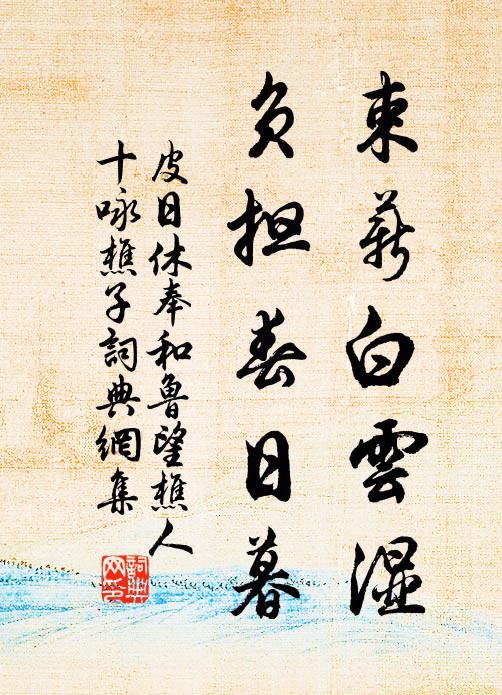 束薪白雲湿
负担春日暮
皮日休奉和鲁望樵人
十咏樵子詞典網集
詞典
网集